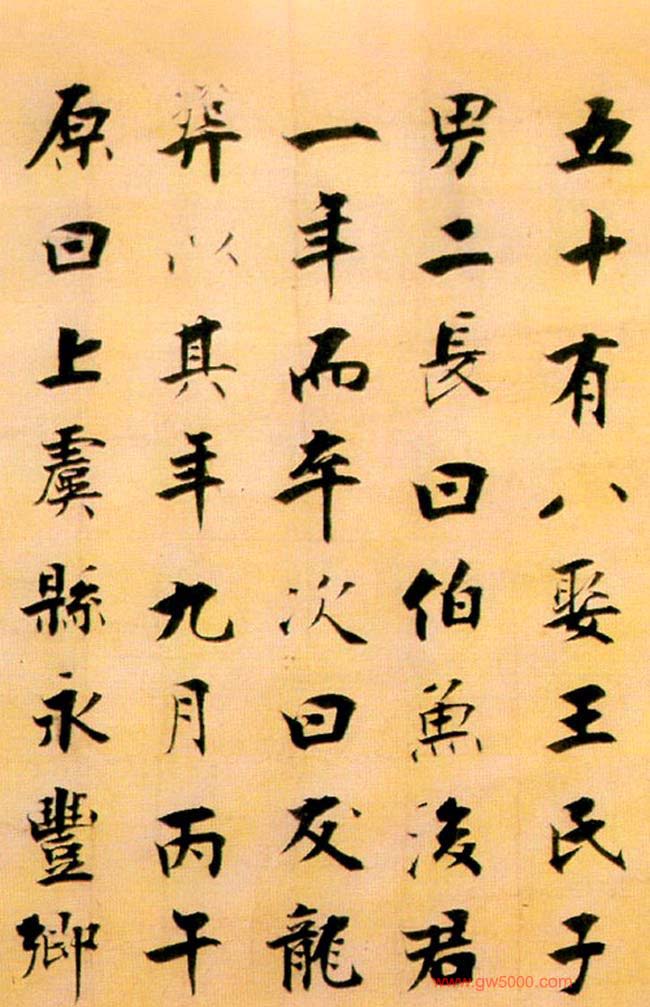 五十有八娶王氏子
男二長曰伯魚後君
一年而卒次曰友龍
葬以其年九月丙午
原曰上虞縣永豐鄉
www.gw5000.com